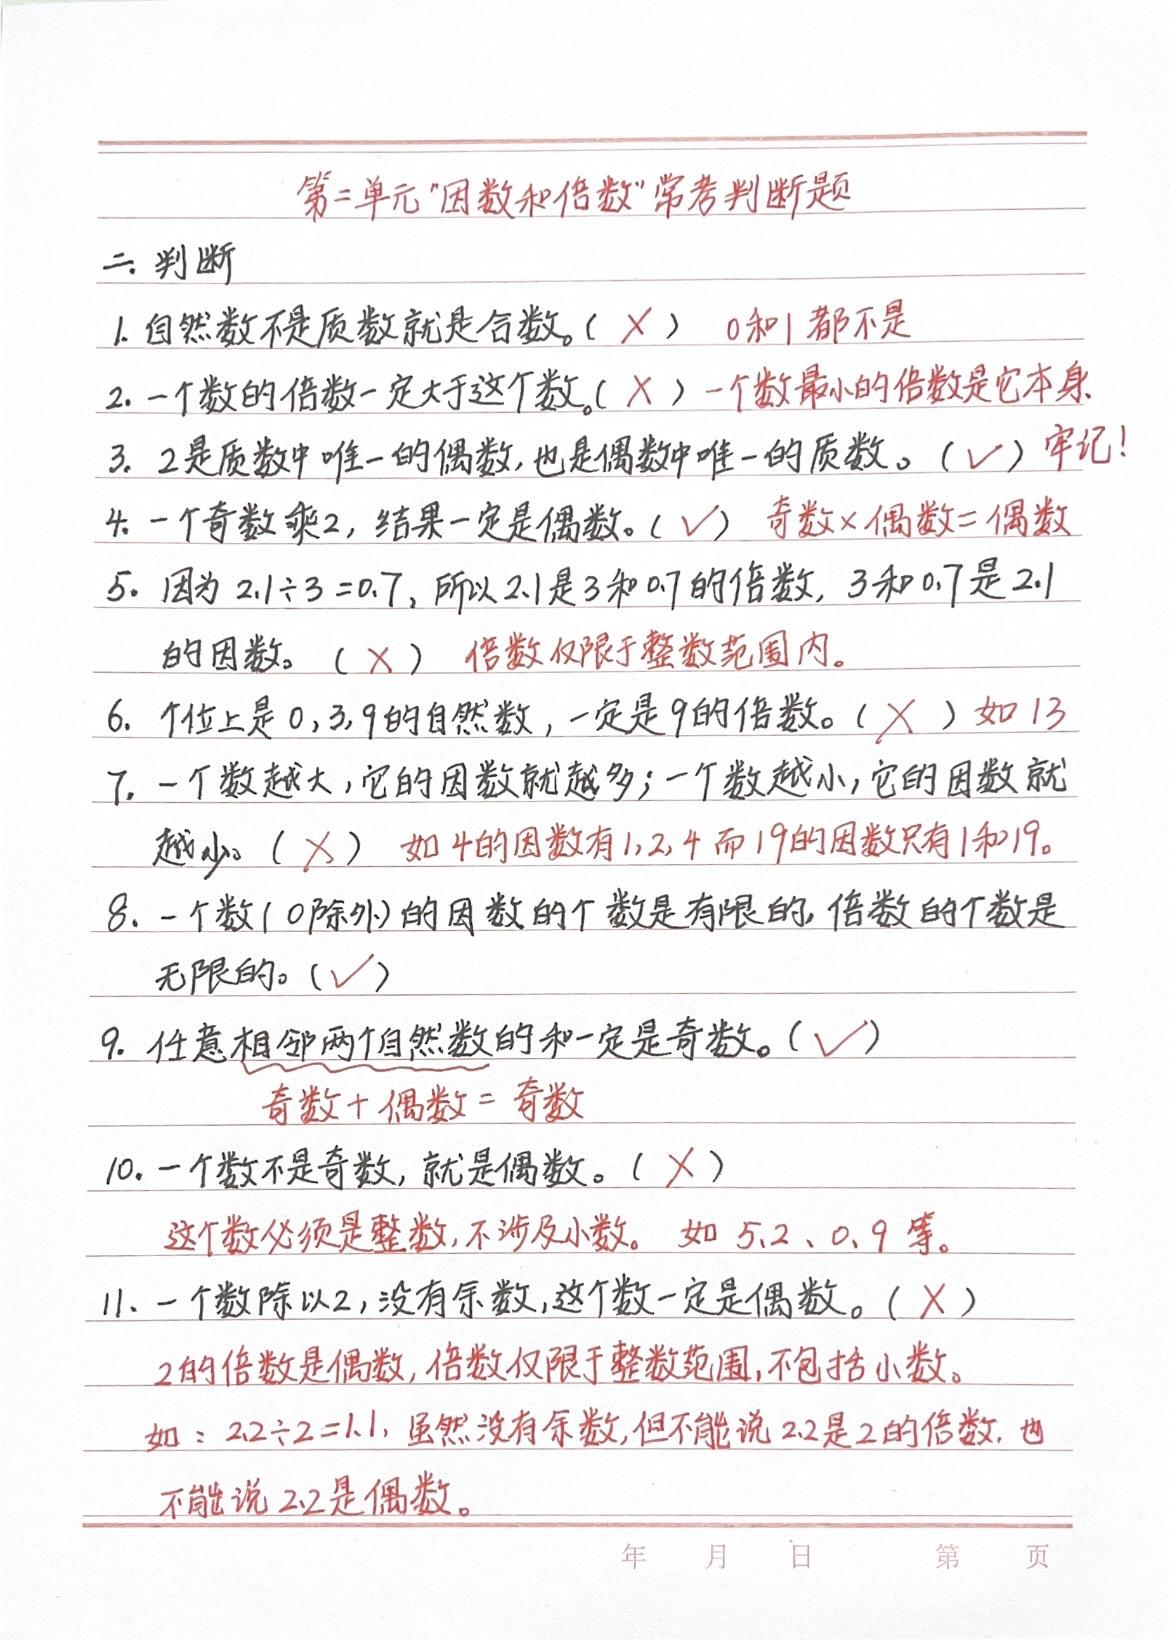 第二单元"因数和倍数"常考判断题
二. 判断
1. 自然数不是质数就是合数。( × ) 0和1都不是
2. 一个数的倍数一定大于这个数。( × ) 一个数最小的倍数是它本身.
3. 2是质数中唯一的偶数,也是偶数中唯一的质数。( ✓ ) 牢记!
4. 一个奇数乘2, 结果一定是偶数。( ✓ ) 奇数×偶数=偶数
5. 因为 2.1÷3=0.7, 所以2.1是3和0.7的倍数, 3和0.7是2.1
的因数。( × ) 倍数仅限于整数范围内。
6. 个位上是0,3,9的自然数,一定是9的倍数。( × ) 如13
7. 一个数越大,它的因数就越多;一个数越小,它的因数就
越少。( × ) 如4的因数有1,2,4而19的因数只有1和19。
8. 一个数(0除外)的因数的个数是有限的,倍数的个数是
无限的。( ✓ )
9. 任意相邻两个自然数的和一定是奇数。( ✓ )
奇数+偶数=奇数
10. 一个数不是奇数, 就是偶数。( × )
这个数必须是整数,不涉及小数。 如 5.2、0.9等。
11. 一个数除以2,没有余数,这个数一定是偶数。( × )
2的倍数是偶数,倍数仅限于整数范围,不包括小数。
如: 2.2÷2=1.1, 虽然没有余数,但不能说2.2是2的倍数.也
不能说2.2是偶数。
年 月 日 第 页